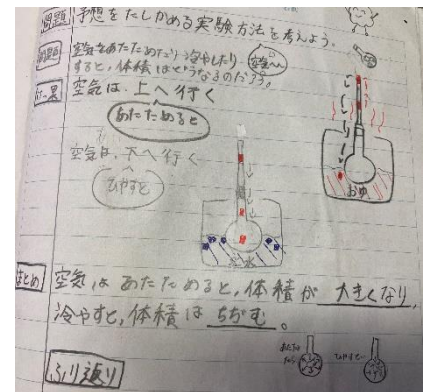 問題 予想をたしかめる実験方法を考えよう。
問題 空気をあたためたり冷やしたり
すると、体積はどうなるのだろう。
結果 空気は、上へ行く
あたためると
空気は、下へ行く
ひやすと
おゆ
氷水
まとめ 空気はあたためると、体積が大きくなり、
冷やすと、体積はちぢむ。
ふり返り